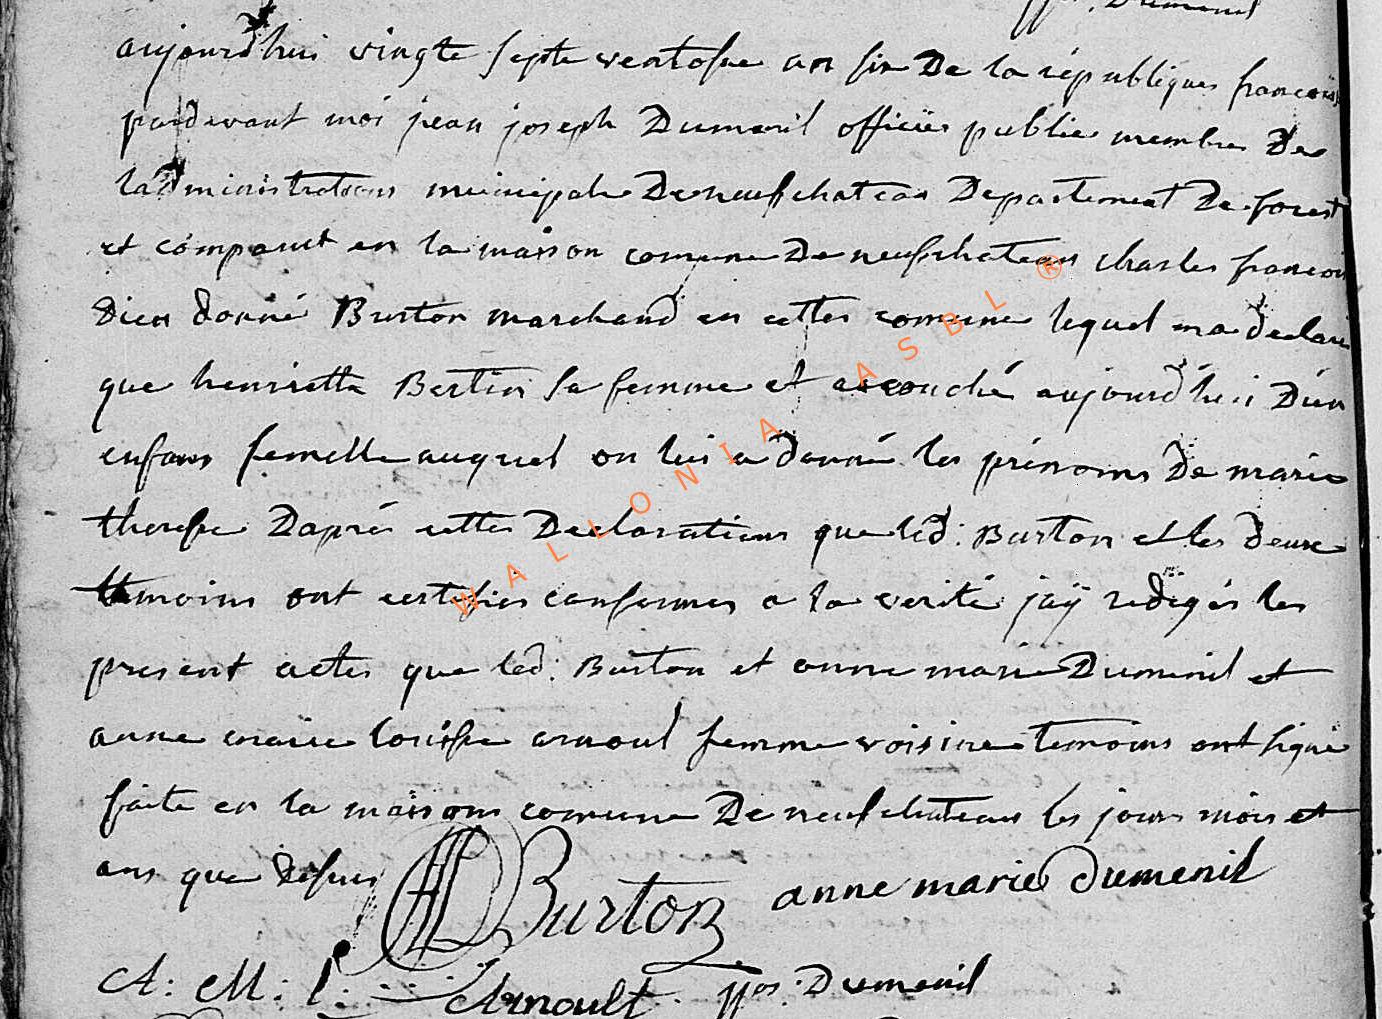 jjos. Dumenil
aujourd'hui vingte septe ventosse an six De la républiques francoise
pardevant moi jean joseph Dumenil officiers publics membres De
ladministrations municipale De neufchateau Departement De forest
et comparut en la maison comune De neufchateau charles francois
Dieu donné Burton marchand en cettes comune lequel ma declaré
que henriette Bertin sa femme et accouché aujourd'hui D'un
enfans femelle auquel on lui a donné les prénoms De marie
theresse Daprés cettes Declarations que led: Burton et les deux
temoins ont certifies conformes a la verité jaÿ redigés les
present actes que led: Burton et anne marie Dumenil et
anne marie louisse arnoul femme voisine temoins ont signé
faite en la maisons comune De neufchateau les jours mois et
ans que dessus
Burton anne marie dumenil
A: M: l: Arnoult jjos. Dumenil
WALLONIA ASBL ®